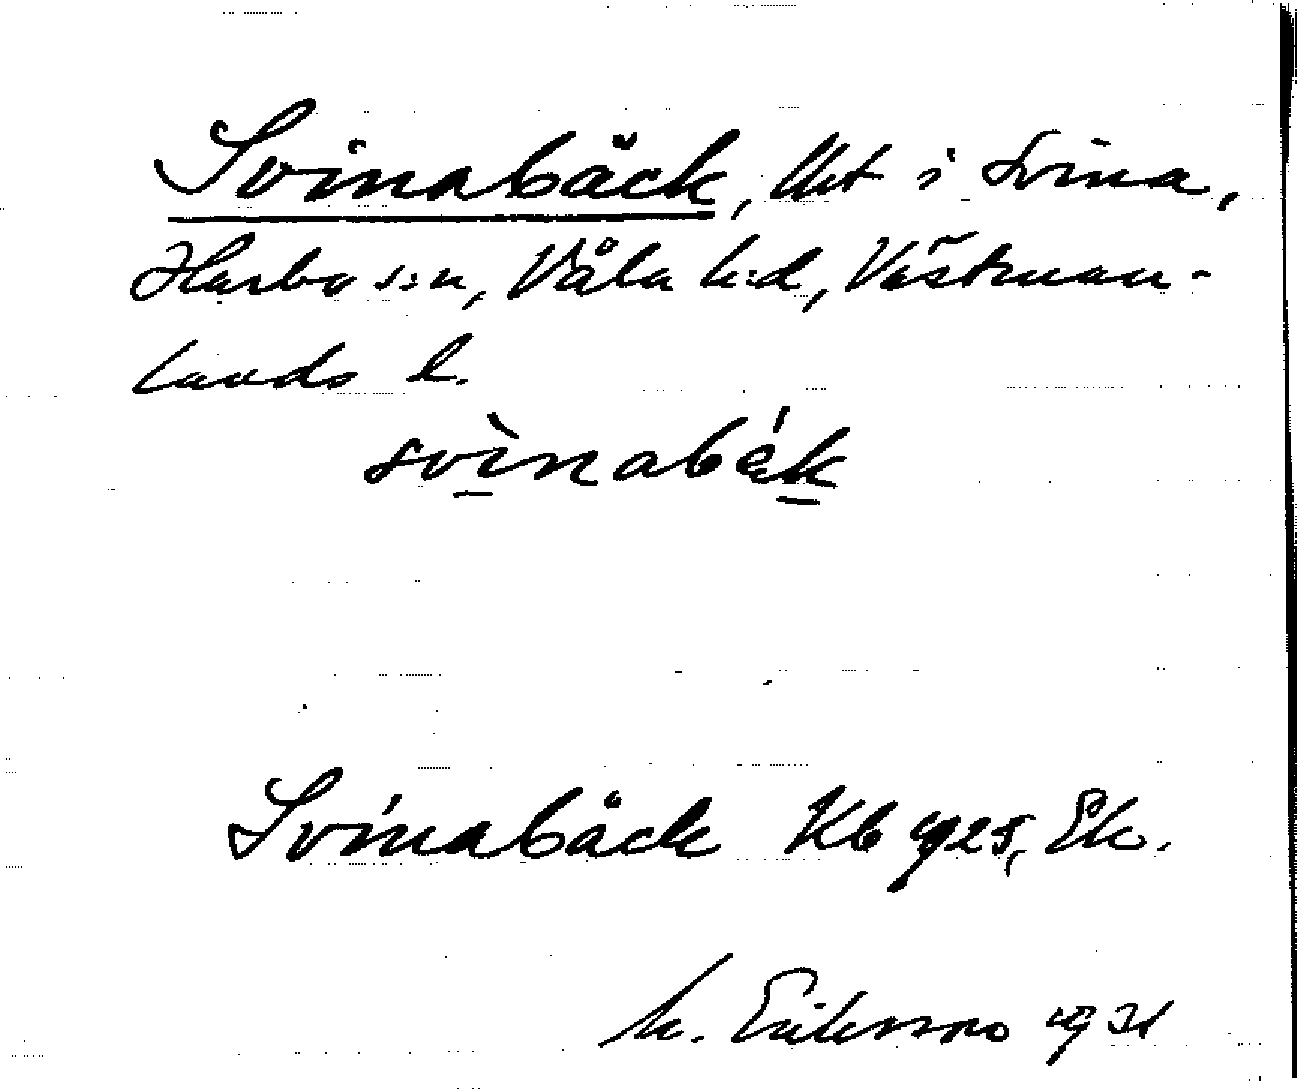 Svinabäck, Utt i Svina,
Harbo s:n, Våla h:d, Västman-
lands l.
svìnabák
Svinabäck Kb 1925, Ek.
M. Eriksson 1931